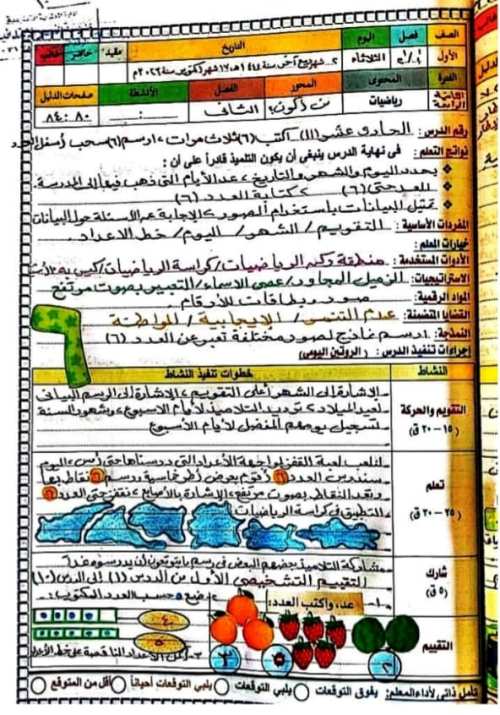 الصف فصل اليوم التاريخ مقيد حاضر
الأول الثلاثاء
الفترة المحتوى المحور الفصل الأنشطة صفحات الدليل
رياضيات من أكون؟ الثاني ٨٠ : ٨٤
رقم الدرس : الحادي عشر (١١) اكتب (٦) ثلاث مرات، ارسم (٦)
نواتج التعلم : في نهاية الدرس ينبغي أن يكون التلميذ قادراً على أن :
يحدد اليوم والشهر والتاريخ، عد الأيام التي ذهب فيها إلى المدرسة.
العد حتى (٦) كتابة العدد (٦)
تمثيل البيانات باستخدام الصور، الإجابة عن أسئلة حول البيانات
المفردات الأساسية : التقويم / الشهر / اليوم / خط الأعداد.
خبارات المعلم :
الأدوات المستخدمة : منطقة ركن الرياضيات / كراسة الرياضيات /
الاستراتيجيات : الزميل المجاور / عصى الأسماء / التعبير بصوت مرتفع
المواد الرقمية : صور وبطاقات للأرقام
القضايا المتضمنة : عدم التنمر / الإيجابية / المواطنة
النمذجة : ارسم نماذج لصور مختلفة تعبر عن العدد (٦)
إجراءات تنفيذ الدرس : ( الروتين اليومي)
النشاط خطوات تنفيذ النشاط
التقويم والحركة
(١٥ - ٢٠ ق)
الإشارة إلى الشهر أعلى التقويم، الإشارة إلى الرسم البياني
لعيد الميلاد، ترديد التلاميذ لأيام الأسبوع، وشهور السنة
تسجيل يومهم المفضل لأيام الأسبوع
تعلم
(٢٥ - ٣٠ ق)
نلعب لعبة القفز لمراجعة الأعداد التي درسناها حتى أمس، اليوم
سندرس العدد (٦)، أقوم بعرض أطر خماسية، رسم ٦ نقاط بها
وبعد النقاط بصوت مرتفع، الإشارة بالأصابع، نقفز حتى العدد ٦
التطبيق في كراسة الرياضيات
شارك
(٥ ق)
مشاركة التلاميذ بعضهم البعض في رسم ما يتوقعون أن يدرسوه غداً
التقييم
التقييم التشخيصي الأول من الدرس (١) إلى الدرس (١٠)
١- عد، واكتب العدد: ٢- ضع حسب العدد المكتوب :
٢ ٥ ٣ ٤ ٥
٣- أكمل الأعداد الناقصة على خط الأعداد
تأمل ذاتي لأداء المعلم: يفوق التوقعات يلبي التوقعات يلبي التوقعات أحياناً أقل من المتوقع